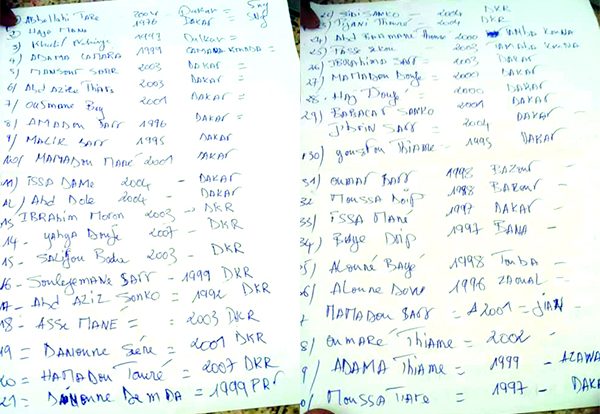 1) Abdullahi Tare 2004 Dakar = Sng
2) Haja Mane 1976 DAKAR = Sng
3) Khalil Ndiaye 1993 Dalkar =
4) ADAMA CAMARA 1999 =
5) MANSOUR SARR 2003 DAKAR =
6) Abd AZIZ Thiare 2003 DAKAR =
7) Ousmane Bey 2001 DAKAR =
8) AMADOU SARR 1996 DAKAR
9) MALIK SARR 1995 DAKAR
10) MAMADOU MANÉ 2001 DAKAR
11) ISSA DAME 2004 - DAKAR
12) Abd Dole 2004 - DAKAR
13 IBRAHIM Moron 2003 -> DKR
14 - yahya Douf 2007 - DKR
15 - SALIFOU Badu 2003 - DKR
16 - Souleyemane SARR - 1999 DKR
17 - Abd AZIZ SONKO = 1992 DKR
18 - ASSE MANÉ = : 2003 DKR
19 = DANOUNE Siére = 2001 DKR
20 = HAMADOU Touré = 2007 DKR
21 = DANOUNE DEMDA = 1999
22) SIDI SANKO - 2004 DKR
23) Tijani Thiame - 2004 DKR
24) Abd RAHMANE Thiame 2000
25) Tasse 2003
26) IBRAHIMA Sarr = 2003 DAKAR
27) MAMADOU Doufe - 2000 DAKAR
28. Haj Doufe - 2000 DAKAR
29) BABACAR SANKO 2001 DAKAR
Jibrin SARR = 2004 DAKAR -
30) Thiame - 1995 DAKAR
31) oumar SARR 1998 -
32) Moussa Diop 1988 -
33) issa Mane 1997 DAKAR -
34) Baye Diop 1997 BANA -
5) Alouné Bayé 1998 Touba -
6) Alouné 1996 -
7 MAMADOU SARR = 2001 =
8) Oumaré THIAME = 2002 -
9) ADAMA Thiame = 1999 - AZAWA
0) Moussa Tiare = 1997 - DAKA